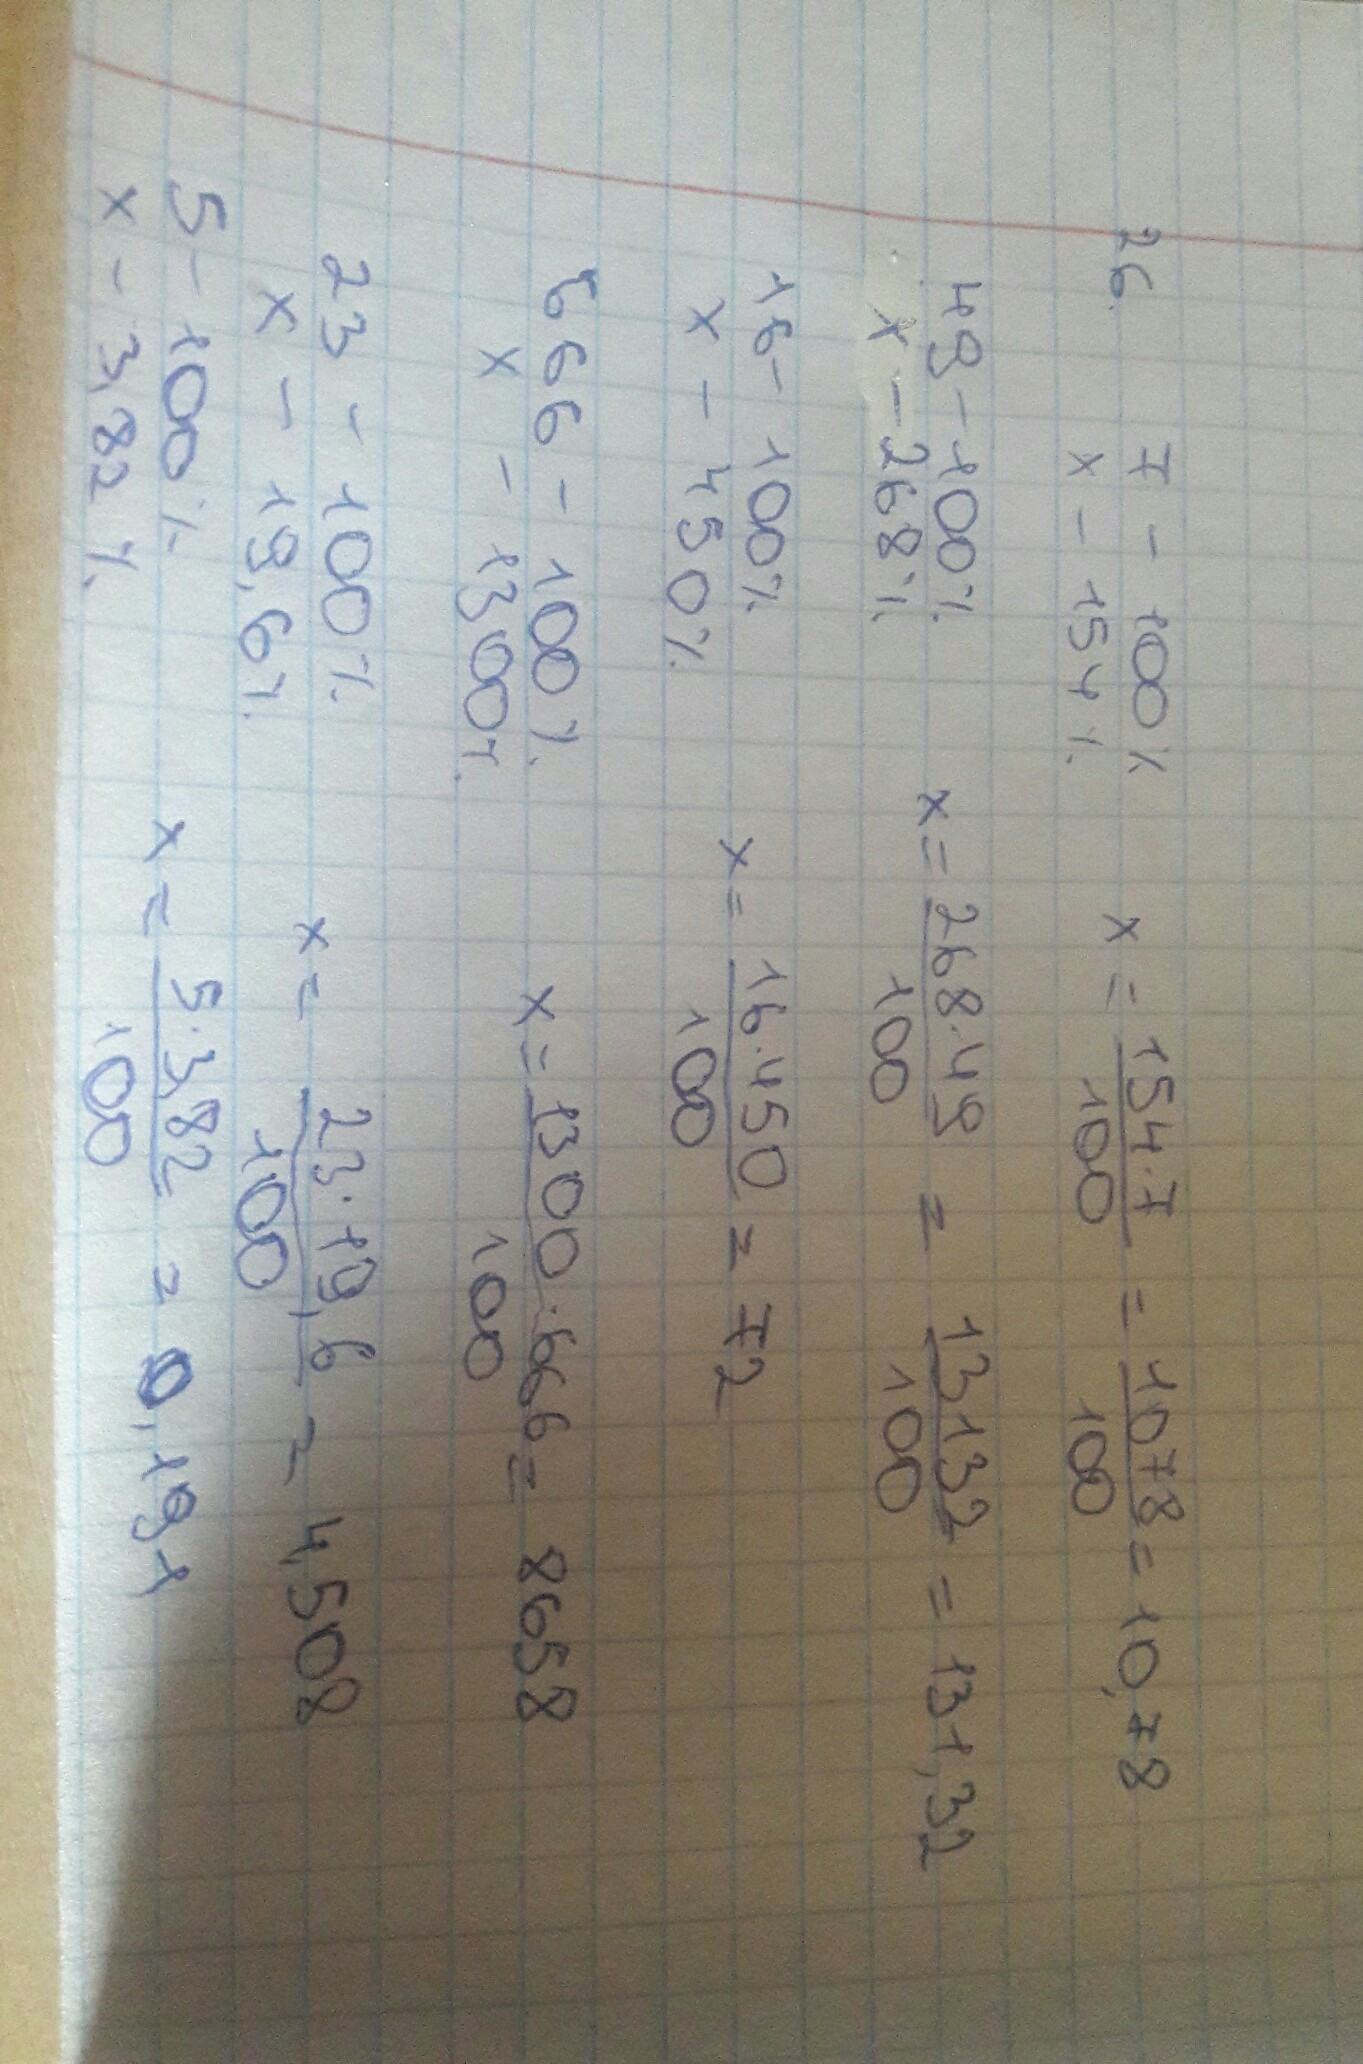 26. 7 - 100%
x - 154% x = 154·7/100 = 1078/100 = 10,78
49 - 100%
x - 268% x = 268·49/100 = 13132/100 = 131,32
16 - 100%
x - 450% x = 16·450/100 = 72
666 - 100%
x - 1300% x = 1300·666/100 = 8658
23 - 100%
x - 19,6% x = 23·19,6/100 = 4,508
5 - 100%
x - 3,82% x = 5·3,82/100 = 0,191